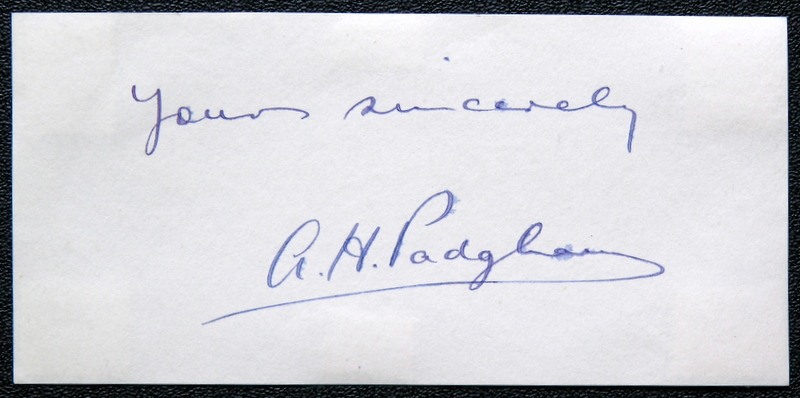 Yours sincerely
A.H. Padgham